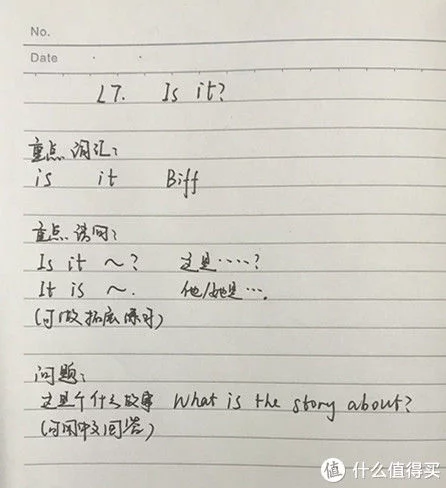 No.
Date
L7. Is it?
重点词汇:
is it Biff
重点读问:
Is it ~? 这是····?
It is ~. 他/她是···.
(可做拓展练习)
问题:
这是个什么故事 What is the story about?
(可用中文回答)
值 什么值得买